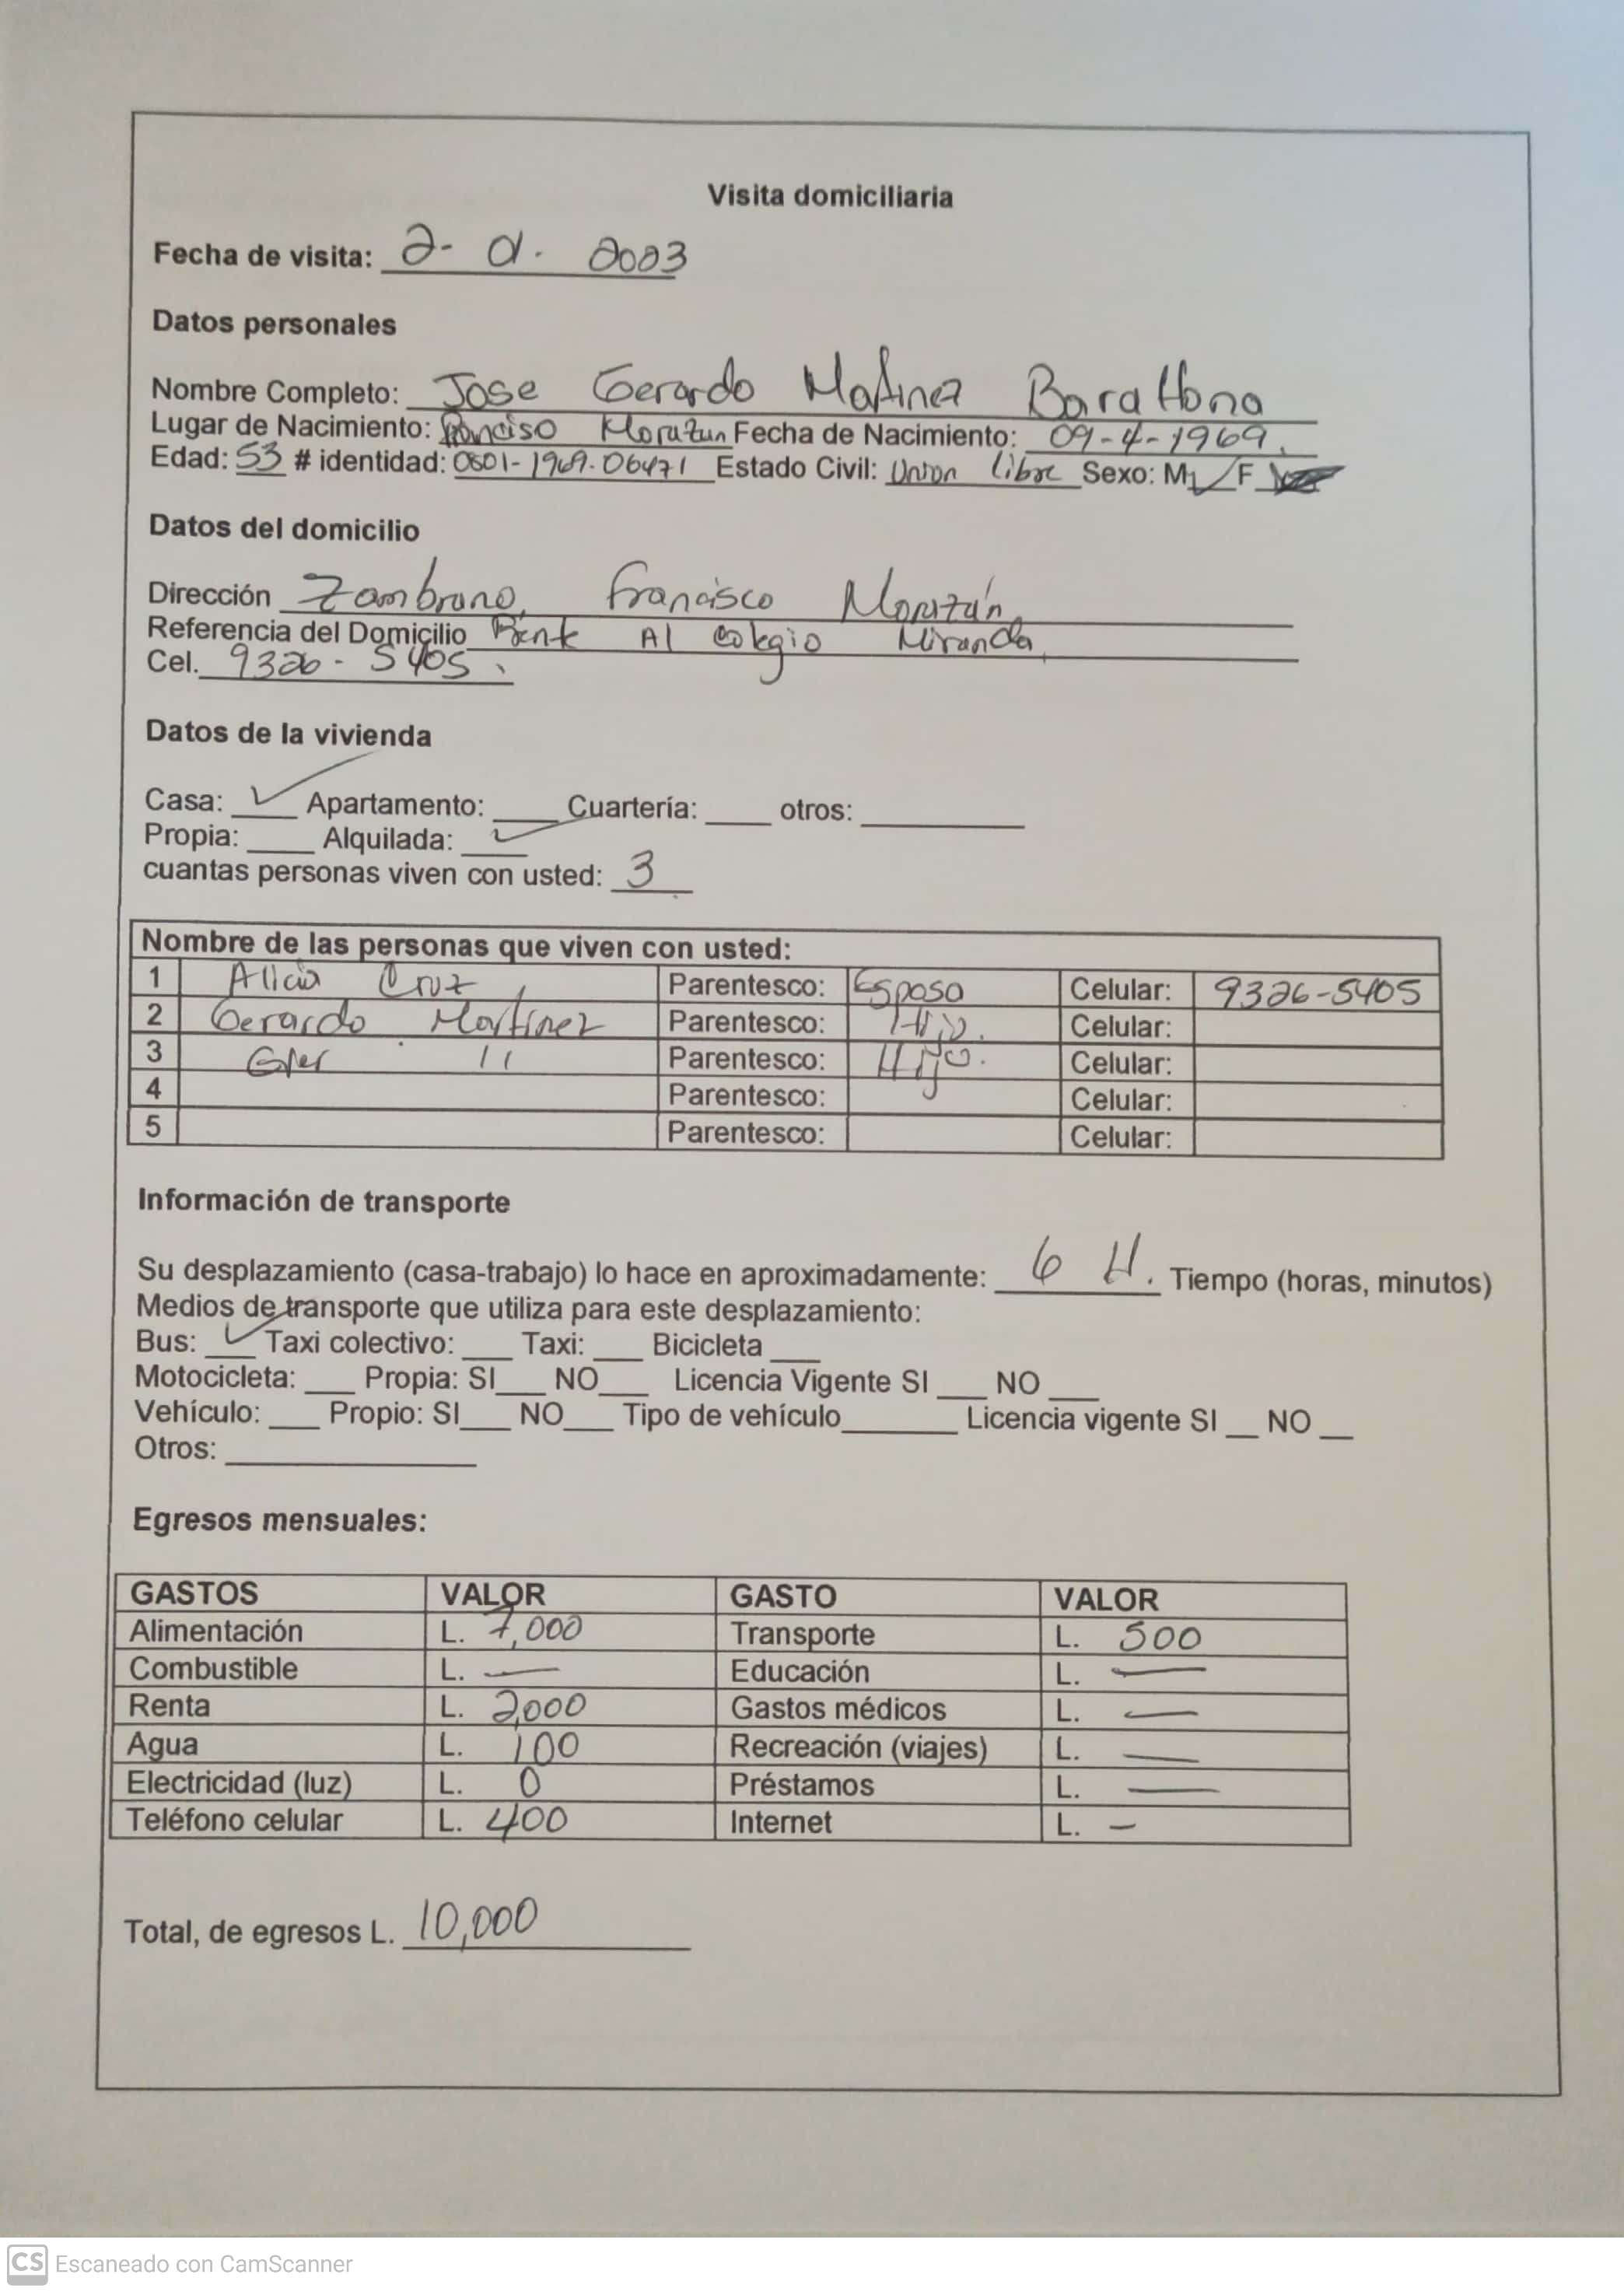 Visita domiciliaria
Fecha de visita: 2- 2023
Datos personales
Nombre Completo: Jose Gerardo Martinez Barahona
Lugar de Nacimiento: Francisco Morazan Fecha de Nacimiento: 09-4-1969.
Edad: 53 # identidad: 0801-1969-06471 Estado Civil: Union libre Sexo: M ✓ F
Datos del domicilio
Dirección Zambrano, Francisco Morazán
Referencia del Domicilio Frente Al Colegio Miranda
Cel. 9326-5405.
Datos de la vivienda
Casa: ✓ Apartamento: ____ Cuartería: ____ otros: ____
Propia: ____ Alquilada: ✓
cuantas personas viven con usted: 3
Nombre de las personas que viven con usted:
1 Alicia Cruz Parentesco: Esposa Celular: 9326-5405
2 Gerardo Martinez Parentesco: Hijo. Celular:
3 " Parentesco: Hijo. Celular:
4 Parentesco: Celular:
5 Parentesco: Celular:
Información de transporte
Su desplazamiento (casa-trabajo) lo hace en aproximadamente: 6 H. Tiempo (horas, minutos)
Medios de transporte que utiliza para este desplazamiento:
Bus: ✓ Taxi colectivo: ___ Taxi: ___ Bicicleta ___
Motocicleta: ___ Propia: SI___ NO___ Licencia Vigente SI ___ NO ___
Vehículo: ___ Propio: SI___ NO___ Tipo de vehículo_______ Licencia vigente SI __ NO __
Otros: ____
Egresos mensuales:
GASTOS VALOR GASTO VALOR
Alimentación L. 7,000 Transporte L. 500
Combustible L. — Educación L. —
Renta L. 2,000 Gastos médicos L. —
Agua L. 100 Recreación (viajes) L. —
Electricidad (luz) L. 0 Préstamos L. —
Teléfono celular L. 400 Internet L. —
Total, de egresos L. 10,000
CS Escaneado con CamScanner